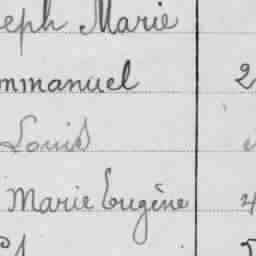 eph Marie
mmanuel 2
Louis
Marie Eugène 4